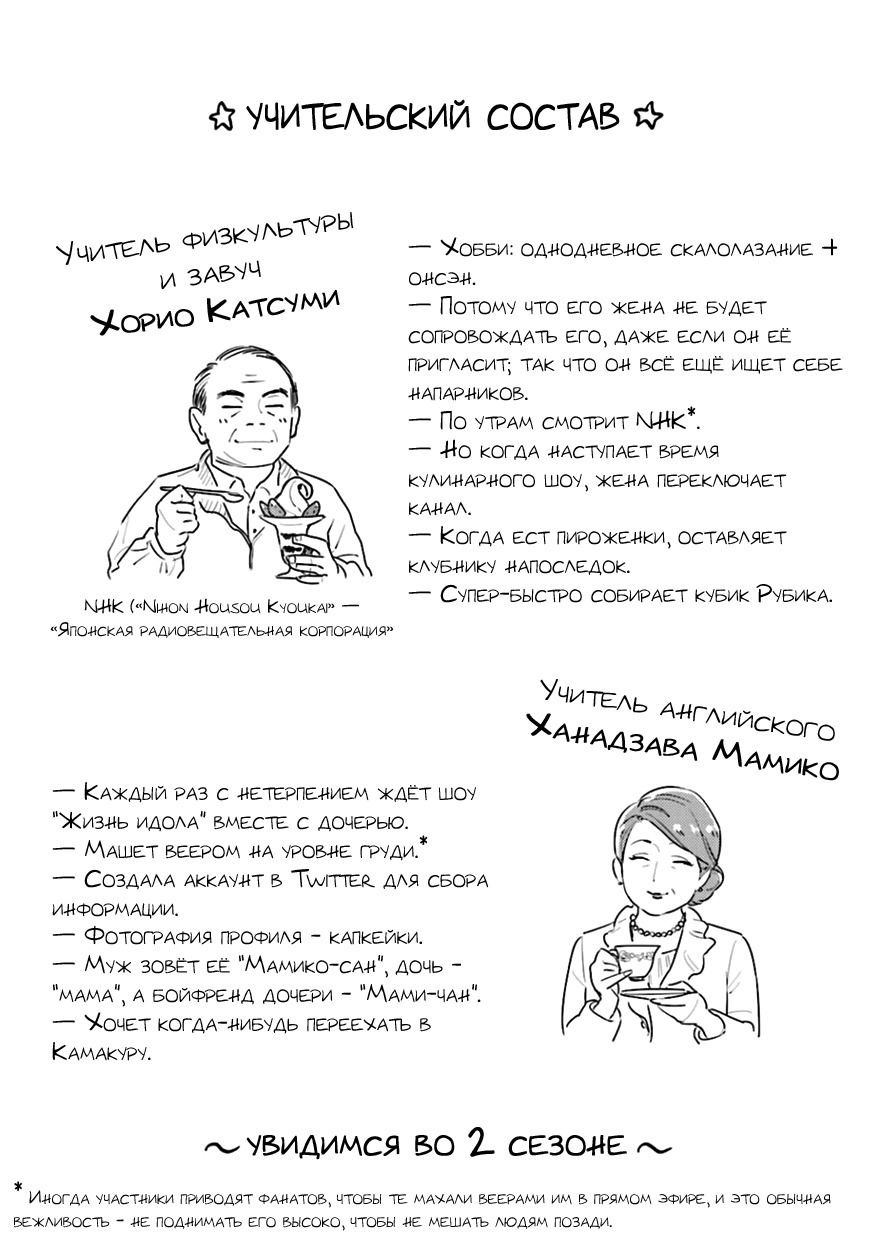 ☆ УЧИТЕЛЬСКИЙ СОСТАВ ☆
УЧИТЕЛЬ ФИЗКУЛЬТУРЫ
И ЗАВУЧ
ХОРИО КАТСУМИ
— ХОББИ: ОДНОДНЕВНОЕ СКАЛОЛАЗАНИЕ +
ОНСЭН.
— ПОТОМУ ЧТО ЕГО ЖЕНА НЕ БУДЕТ
СОПРОВОЖДАТЬ ЕГО, ДАЖЕ ЕСЛИ ОН ЕЁ
ПРИГЛАСИТ; ТАК ЧТО ОН ВСЁ ЕЩЁ ИЩЕТ СЕБЕ
НАПАРНИКОВ.
— ПО УТРАМ СМОТРИТ NHK*.
— НО КОГДА НАСТУПАЕТ ВРЕМЯ
КУЛИНАРНОГО ШОУ, ЖЕНА ПЕРЕКЛЮЧАЕТ
КАНАЛ.
— КОГДА ЕСТ ПИРОЖЕНКИ, ОСТАВЛЯЕТ
КЛУБНИКУ НАПОСЛЕДОК.
— СУПЕР-БЫСТРО СОБИРАЕТ КУБИК РУБИКА.
NHK («NIHON HOUSOU KYOUKAI» —
«ЯПОНСКАЯ РАДИОВЕЩАТЕЛЬНАЯ КОРПОРАЦИЯ»
УЧИТЕЛЬ АНГЛИЙСКОГО
ХАНАДЗАВА МАМИКО
— КАЖДЫЙ РАЗ С НЕТЕРПЕНИЕМ ЖДЁТ ШОУ
"ЖИЗНЬ ИДОЛА" ВМЕСТЕ С ДОЧЕРЬЮ.
— МАШЕТ ВЕЕРОМ НА УРОВНЕ ГРУДИ.*
— СОЗДАЛА АККАУНТ В TWITTER ДЛЯ СБОРА
ИНФОРМАЦИИ.
— ФОТОГРАФИЯ ПРОФИЛЯ - КАПКЕЙКИ.
— МУЖ ЗОВЁТ ЕЁ "МАМИКО-САН", ДОЧЬ -
"МАМА", А БОЙФРЕНД ДОЧЕРИ - "МАМИ-ЧАН".
— ХОЧЕТ КОГДА-НИБУДЬ ПЕРЕЕХАТЬ В
КАМАКУРУ.
~ УВИДИМСЯ ВО 2 СЕЗОНЕ ~
* ИНОГДА УЧАСТНИКИ ПРИВОДЯТ ФАНАТОВ, ЧТОБЫ ТЕ МАХАЛИ ВЕЕРАМИ ИМ В ПРЯМОМ ЭФИРЕ, И ЭТО ОБЫЧНАЯ
ВЕЖЛИВОСТЬ - НЕ ПОДНИМАТЬ ЕГО ВЫСОКО, ЧТОБЫ НЕ МЕШАТЬ ЛЮДЯМ ПОЗАДИ.